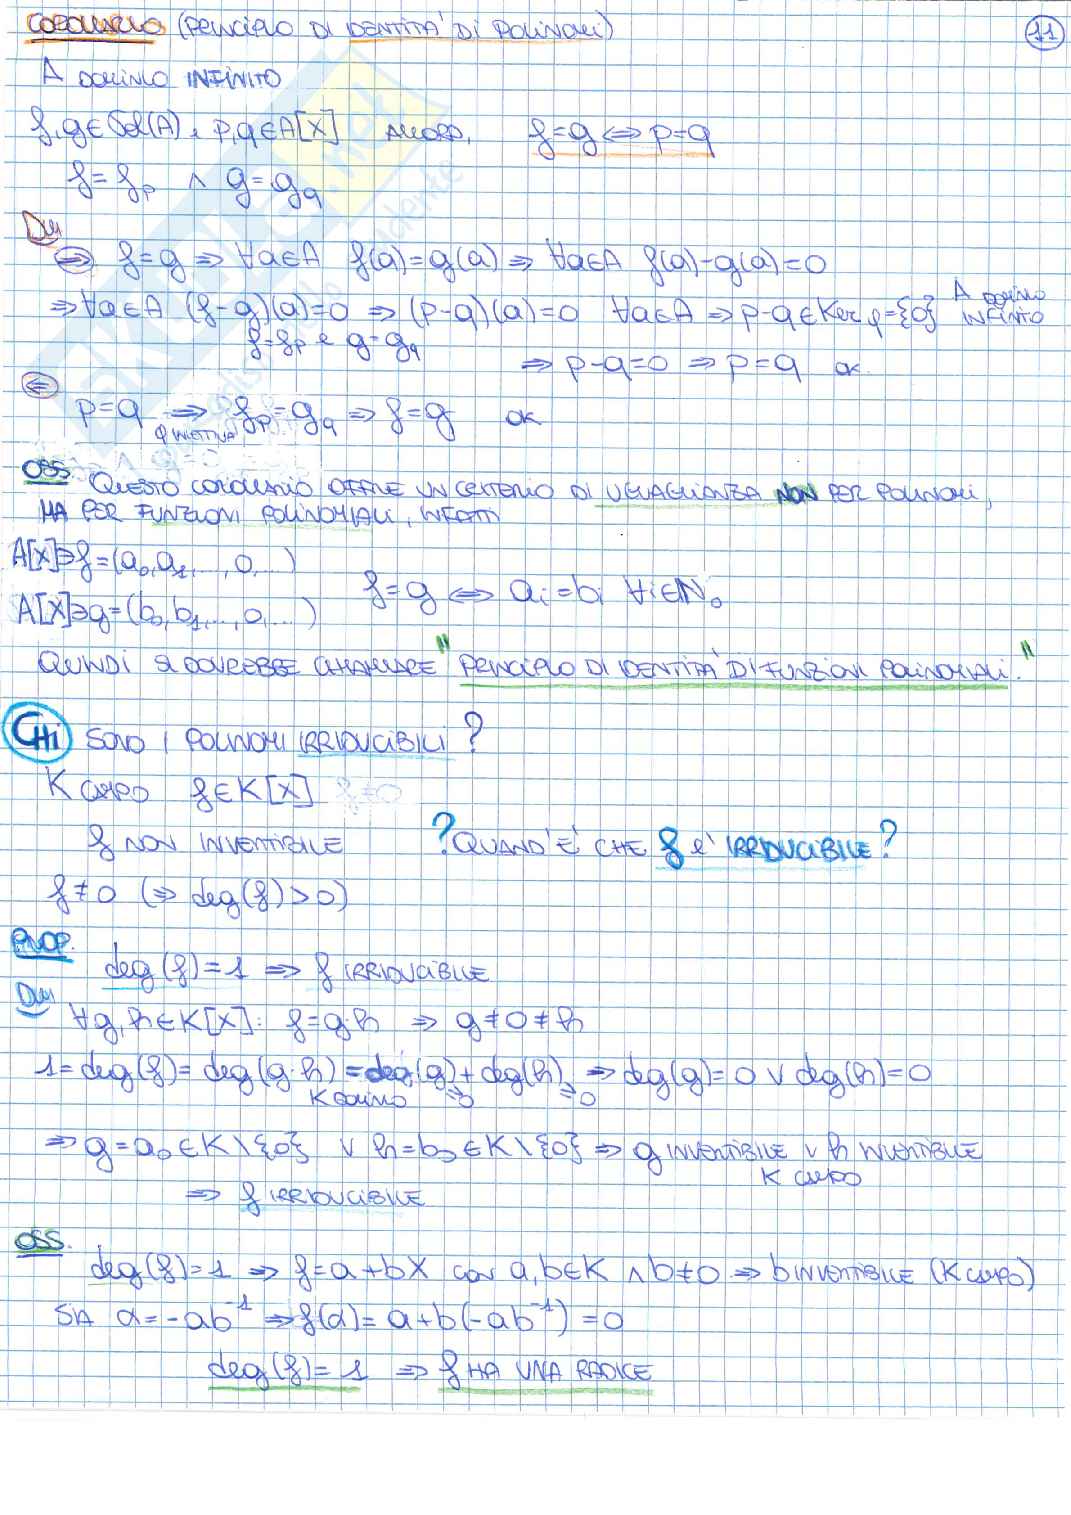 COROLLARIO (PRINCIPIO DI IDENTITA' DI POLINOMI) 11
A DOMINIO INFINITO
f, g ∈ Pol(A) e p, q ∈ A[X] ALLORA, f=g ⟺ p=q
f=f_p ∧ g=g_q
DIM
⟹ f=g ⟹ ∀a∈A f(a)=g(a) ⟹ ∀a∈A f(a)-g(a)=0
⟹ ∀a∈A (f-g)(a)=0 ⟹ (p-q)(a)=0 ∀a∈A ⟹ p-q ∈ Ker φ={0} A DOMINIO INFINITO
f=f_p e g=g_q ⟹ p-q=0 ⟹ p=q OK.
⟸ p=q ⟹ f_p=g_q ⟹ f=g OK
φ INIETTIVA
OSS. QUESTO COROLLARIO OFFRE UN CRITERIO DI UGUAGLIANZA NON PER POLINOMI,
MA PER FUNZIONI POLINOMIALI, INFATTI
A[X]∋f=(a₀,a₁,...,0,...)
f=g ⟺ aᵢ=bᵢ ∀i∈N₀
A[X]∋g=(b₀,b₁,...,0,...)
QUINDI SI DOVREBBE CHIAMARE "PRINCIPIO DI IDENTITA' DI FUNZIONI POLINOMIALI."
CHI SONO I POLINOMI IRRIDUCIBILI?
K CAMPO f∈K[X] f≠0
f NON INVERTIBILE ?QUAND'E' CHE f e' IRRIDUCIBILE?
f≠0 (⟹ deg(f)>0)
PROP.
deg(f)=1 ⟹ f IRRIDUCIBILE
DIM
∀g,h∈K[X]: f=g·h ⟹ g≠0≠h
1=deg(f)=deg(g·h)=deg(g)+deg(h) ⟹ deg(g)=0 ∨ deg(h)=0
K DOMINIO ≥0 ≥0
⟹ g=a₀∈K\{0} ∨ h=b₀∈K\{0} ⟹ g INVERTIBILE ∨ h INVERTIBILE
K CAMPO
⟹ f IRRIDUCIBILE
OSS.
deg(f)=1 ⟹ f=a+bX con a,b∈K ∧ b≠0 ⟹ b INVERTIBILE (K CAMPO)
SIA α=-ab⁻¹ ⟹ f(α)=a+b(-ab⁻¹)=0
deg(f)=1 ⟹ f HA UNA RADICE